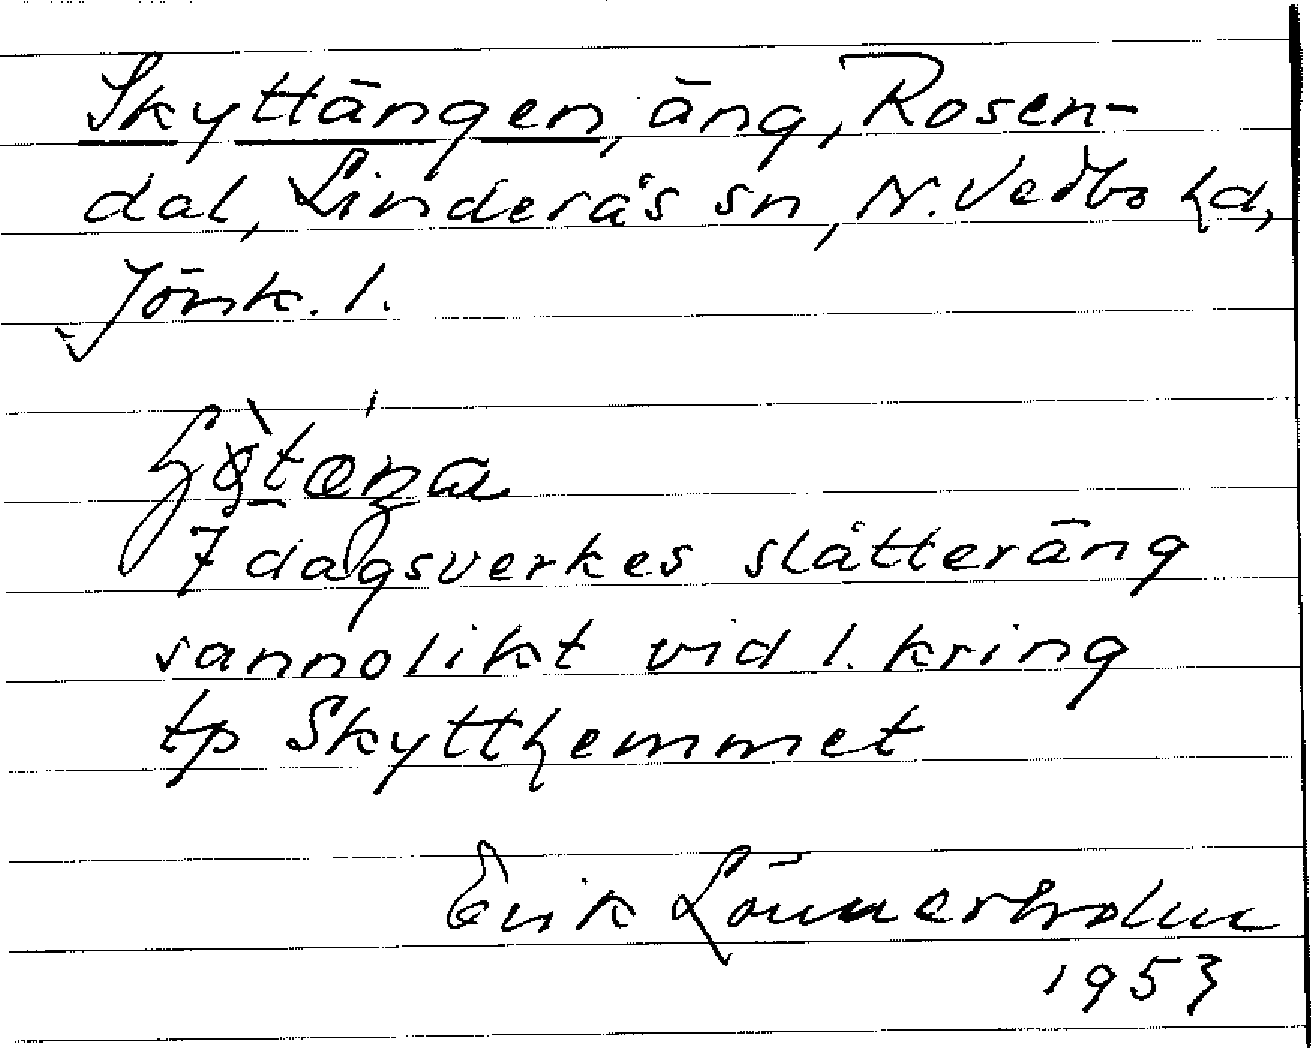 Skyttängen, äng, Rosen-
dal, Linderås sn, N. Vedbo hd,
Jönk. l.
7 dagsverkes slåtteräng
sannolikt vid l. kring
tp Skytthemmet
Erik Lönnerholm
1953